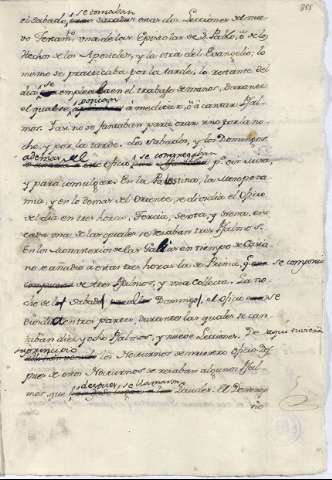 se tomaban
el sabado, eran dos Lecciones del nue
vo Testam.to una de las Epistolas de S. Pablo, ó de los
Hechos de los Apostoles, y la otra del Evangelio; lo
mismo se practicaba por la tarde. Lo restante del
dia se empleaban en el trabajo de manos, durante
el qual se ponian á meditar, ó á cantar Psal
mos. Ya no se juntaban para orar sino por la no
che, y por la tarde. Los Sabados, y los Domingos
ademas del oficio se congregaban p.a oir Misa,
y para comulgar. En la Palestina, la Mesopota
mia, y en lo demas del Oriente, se dividia el Oficio
del dia en tres horas, Tercia, Sexta, y Nona, en
cada una de las quales se rezaban tres Psalmos.
En los Monasterios de las Galias en tiempo de Casia
no se añadio á estas tres horas la de Prima, que se componia
de tres Psalmos, y una colecta. La no
che del Sabado al Domingo, el oficio se
dividia en tres partes, durante las quales se can
taban diez y ocho Psalmos, y nueve Lecciones. De aqui tuvieron
principio los Nocturnos de nuestro oficio. Des
pues de estos Nocturnos se rezaban algunos Psal
mos, que despues se llamaron Laudes. El Domin